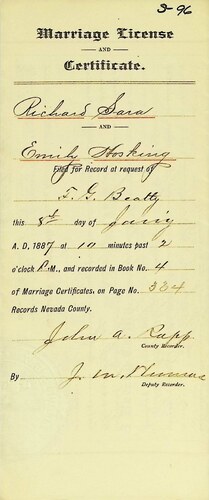 3-96
Marriage License
AND
Certificate.
Richard Sara
AND
Emily Hosking
Filed for Record at request of
F. G. Beatty
this 8th day of Jany
A. D. 1887 at 10 minutes past 2
o'clock P. M., and recorded in Book No. 4
of Marriage Certificates, on Page No. 384
Records Nevada County.
John A. Rapp
County Recorder.
By J. M.
Deputy Recorder.